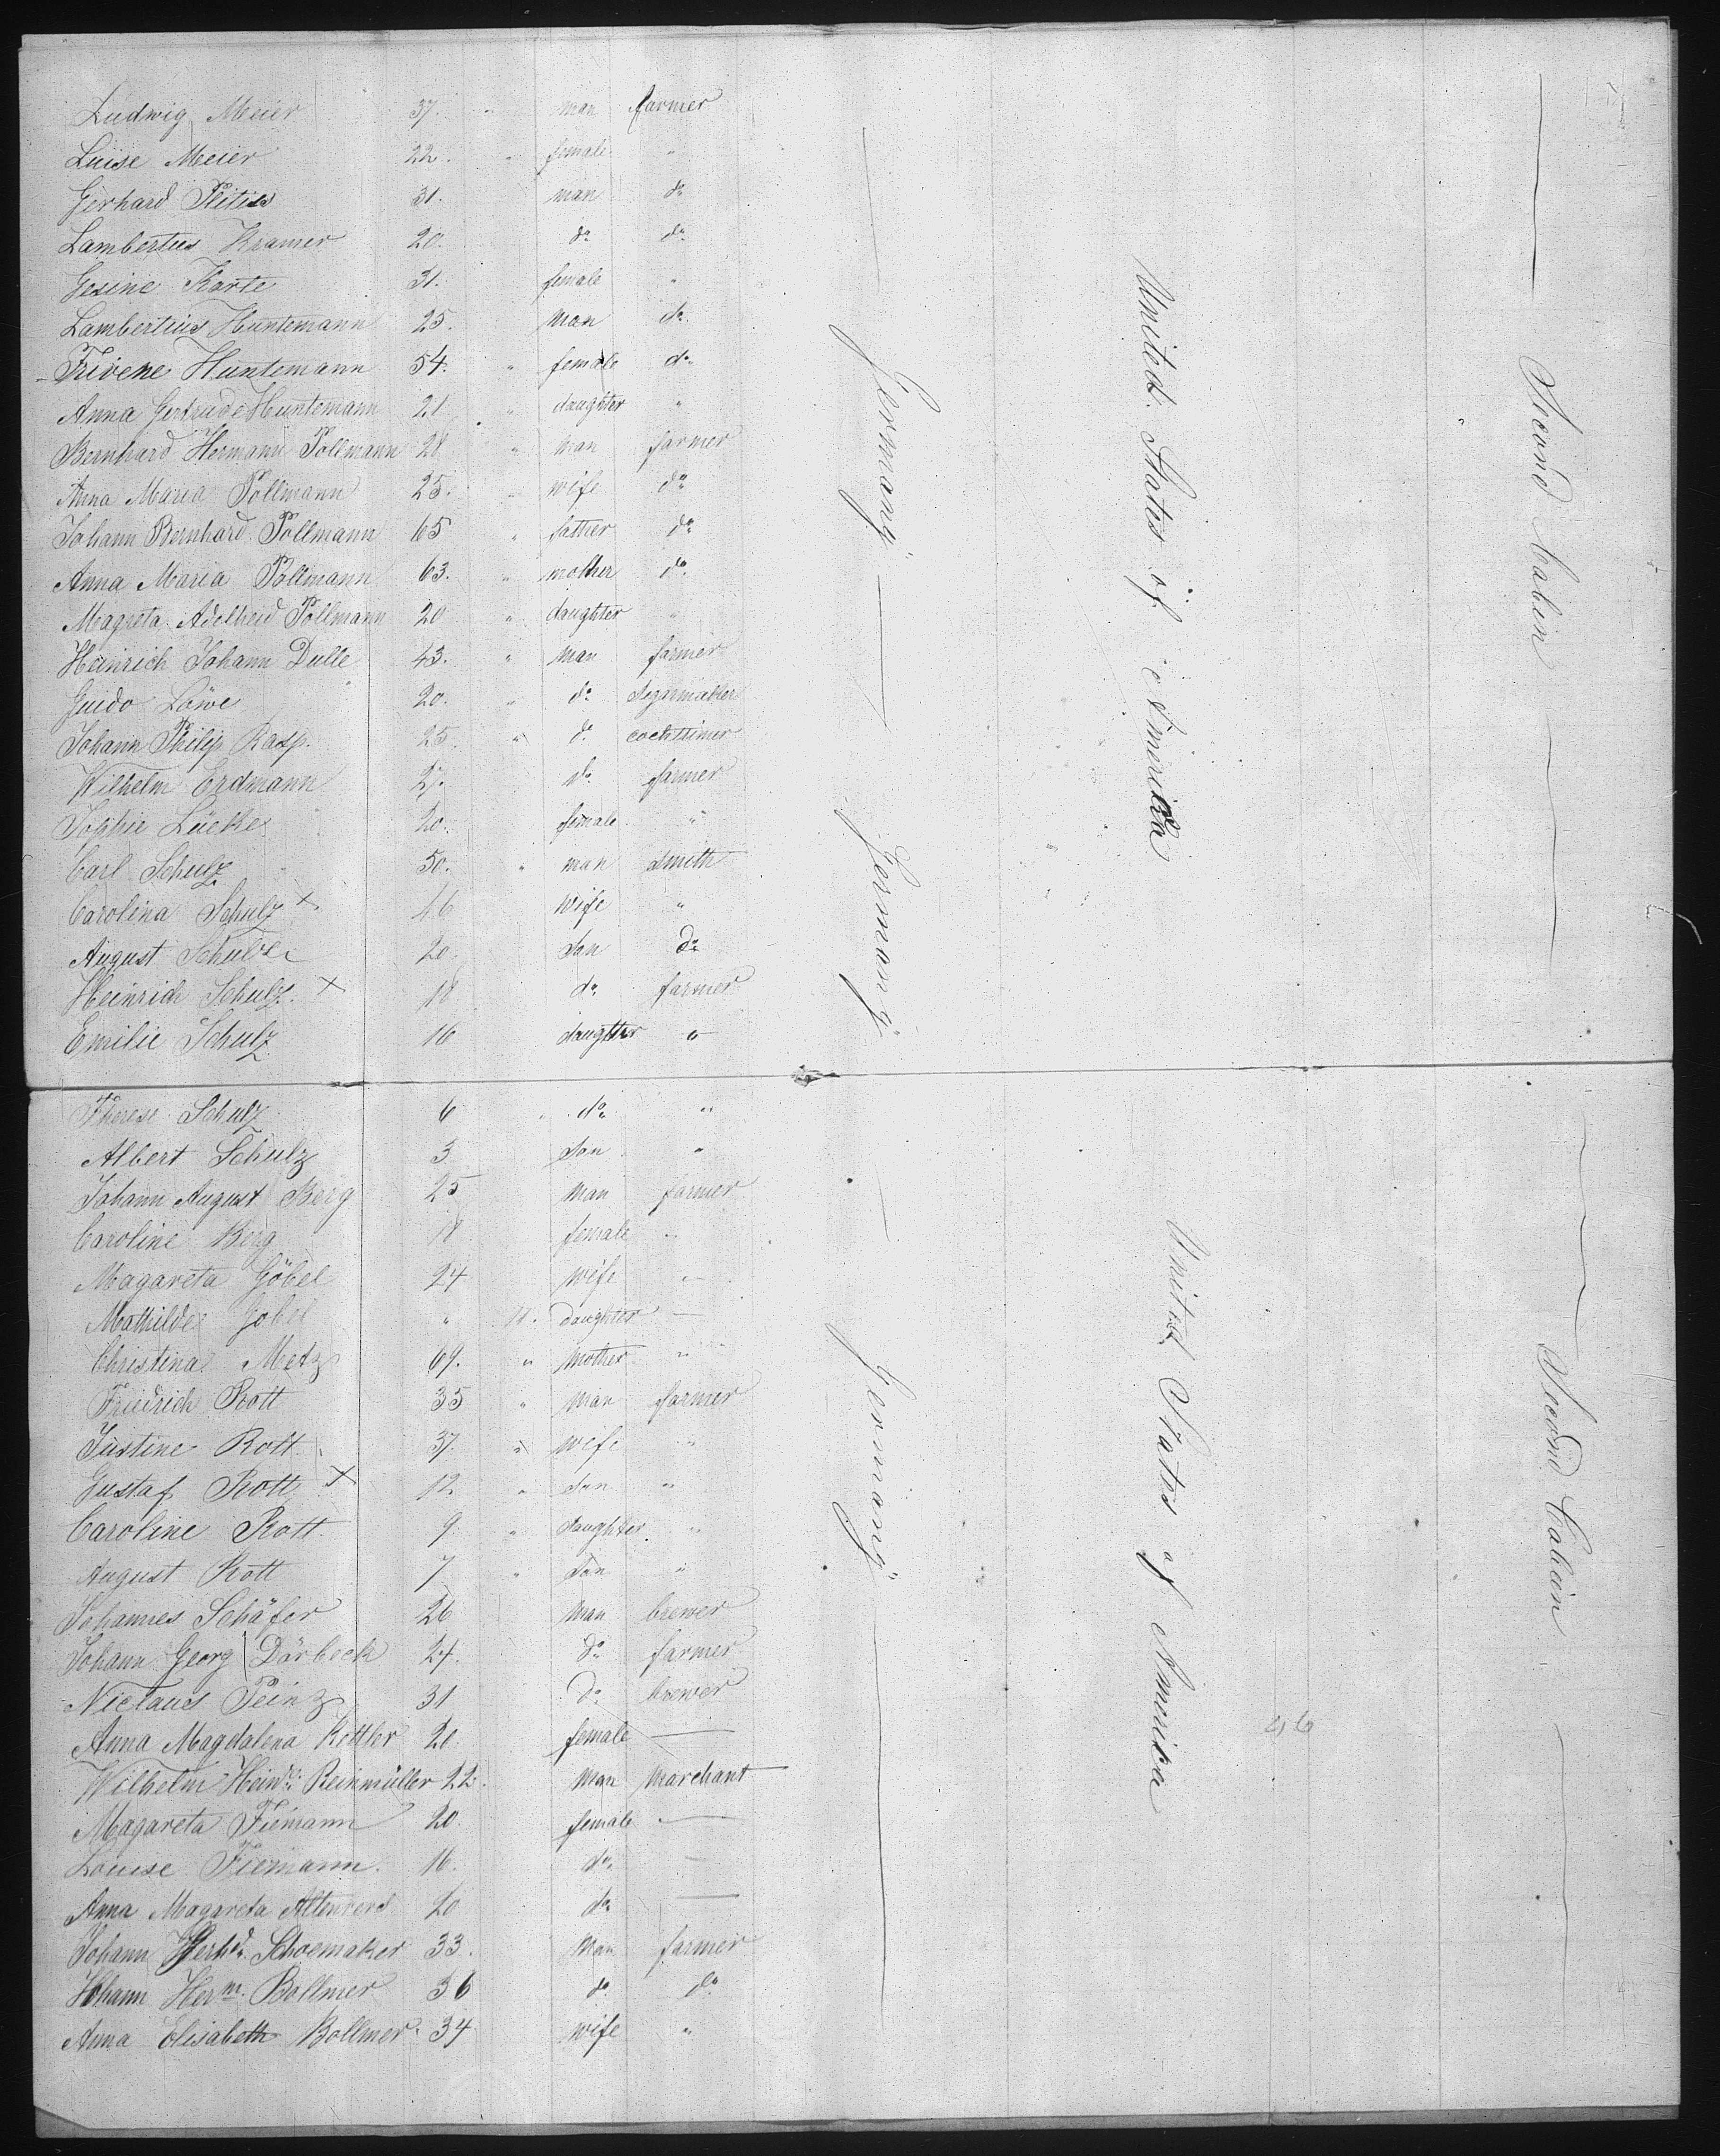 Ludwig Meier 37. " man farmer
Luise Meier 22. " female "
Gerhard 31. man do
Lambertus Kramer 20. do do
Gesine Karte 31. female "
Lambertus Huntemann 25. man do
Huntemann 54. " female do
Anna Gertrude Huntemann 21 " daughter "
Bernhard Hermann Pollmann 28 " man farmer
Anna Maria Pollmann 25. " wife do
Johann Bernhard Pollmann 65 " father do
Anna Maria Pollmann 63. " mother do
Magreta Adelheid Pollmann 20 " daughter "
Heinrich Johann Dulle 43. " man farmer
Guido Löwe 20. " do Segarmaker
Johann Philip Rasp. 25 " do
Wilhelm Erdmann 27. do farmer
Sophie Lücke 20. female "
Carl Schulz 50. " man smith
Carolina Schulz × 46 wife "
August Schulz 20. son do
Heinrich Schulz × 18 do farmer
Emilie Schulz 16 daughter "
Germany
Germany
United States of America
Second Cabin
Therese Schulz 6 " do "
Albert Schulz 3 son "
Johann August Berg 25 man farmer
Caroline Berg 18 female "
Magareta Göbel 24 wife "
Mathilde Göbel " 11. daughter —
Christina Metz 69. " mother "
Friedrich Rott 35 " man farmer
Justine Rott 37. " wife "
Gustaf Rott × 12 " son "
Caroline Rott 9 " daughter "
August Rott 7 " son "
Johannes Schäfer 26 man brewer
Johann Georg Därbeck 24. do farmer
Niclaus Peinz 31 do brewer
Anna Magdalena Kottler 20. female —
Wilhelm Heindr. Reinmüller 22. man marchant
Magareta Tiemann 20 female —
Louise Tiemann. 16. do —
Anna Magareta 20 do —
Johann Gerhd. Schoemaker 33. man farmer
Johann Herm. Bollmer 36 do do
Anna Elisabeth Bollmer 34 wife "
Germany
United States of America
46
Second Cabin